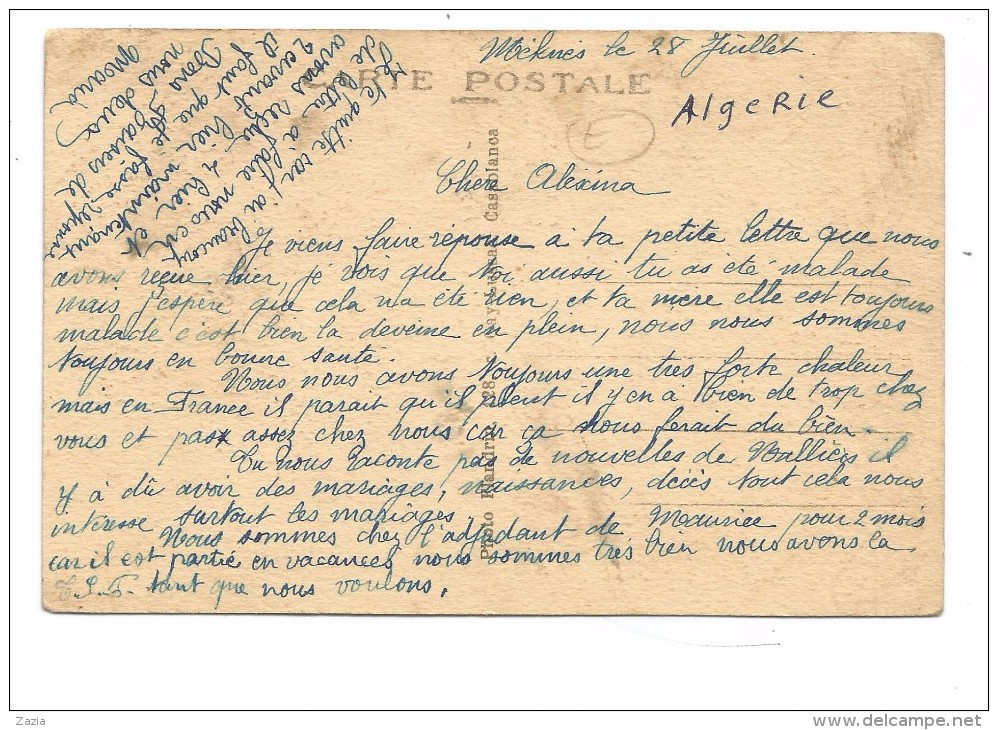 Méknès le 28 Juillet.
CARTE POSTALE
Algerie
E
Chere Alexina
Je viens faire réponse à ta petite lettre que nous
avons reçue hier, je vois que toi aussi tu as été malade
mais j'espère que cela n'a été rien, et ta mère elle est toujours
malade c'est bien la deveine en plein, nous nous sommes
toujours en bonne santé.
Nous nous avons toujours une très forte chaleur
mais en France il parait qu'il pleut il y en a bien de trop chez
vous et pas assez chez nous car ça nous ferait du bien.
Tu nous raconte pas de nouvelles de Vallières il
y à dû avoir des mariages, naissances, décès tout cela nous
intéresse surtout les mariages.
Nous sommes chez l'adjudant de Maurice pour 2 mois
car il est partie en vacances nous sommes très bien nous avons la
T.S.F. tant que nous voulons.
Je te quitte car j'ai
de à faire nous en
avons reçue hier et
il faut que maintenant
Bons baisers de
nous deux
Photo Flandrin, 28, Casablanca
Zazia
delcampe.net